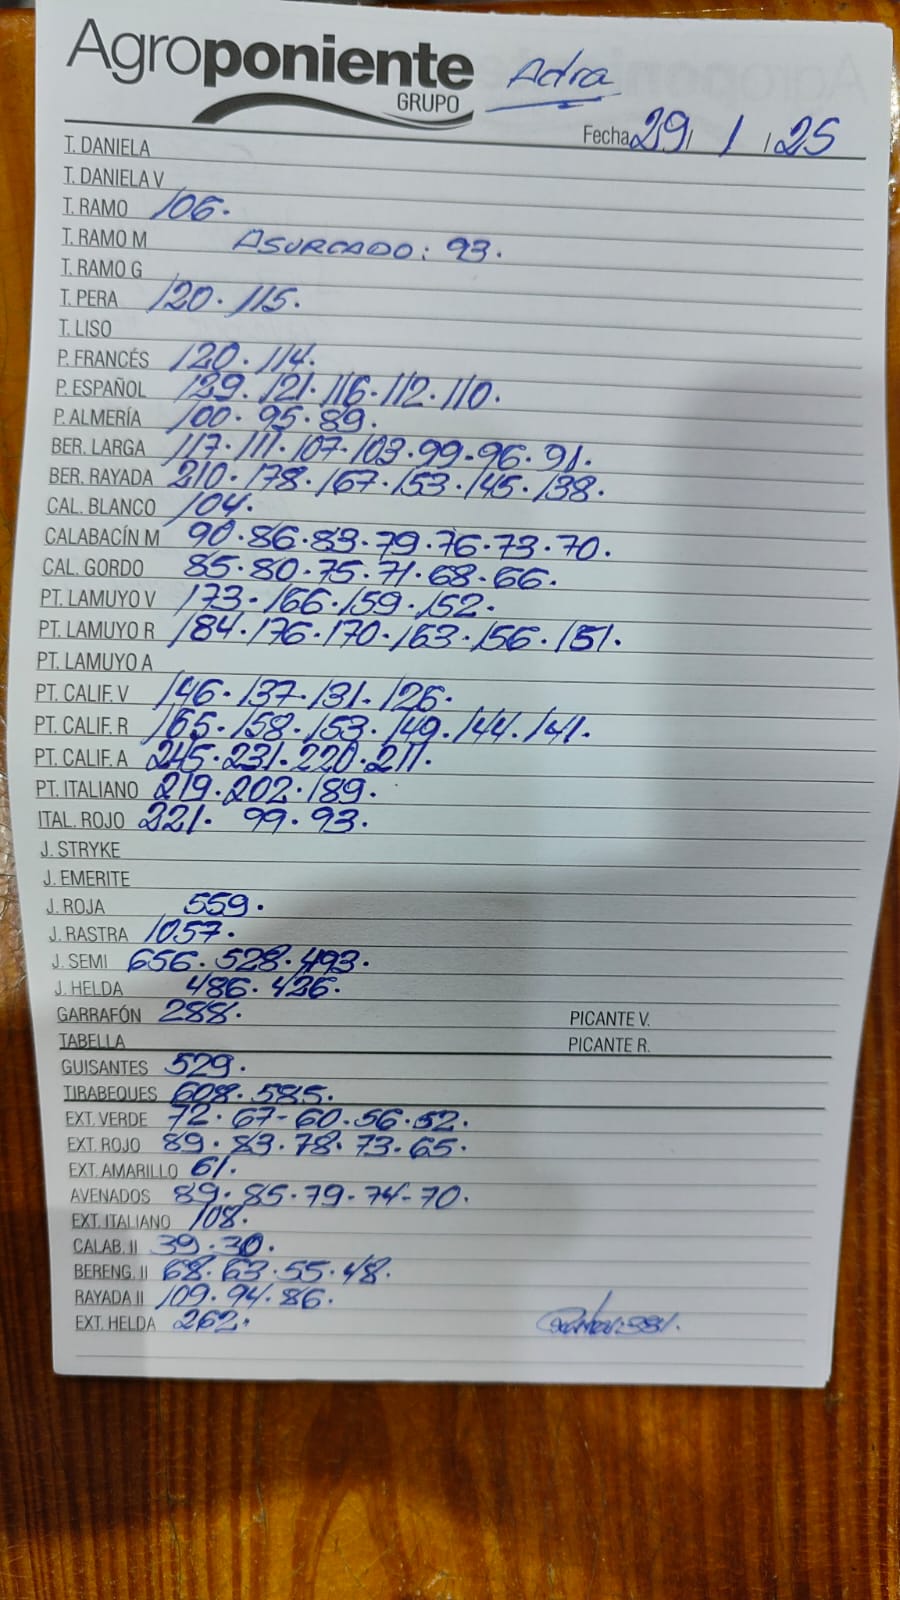 Agroponiente
GRUPO
Adra
Fecha 29 / 1 / 25
T. DANIELA
T. DANIELA V
T. RAMO 106.
T. RAMO M ASURCADO: 93.
T. RAMO G
T. PERA 120. 115.
T. LISO
P. FRANCÉS 120. 114.
P. ESPAÑOL 129. 121. 116. 112. 110.
P. ALMERÍA 100. 95. 89.
BER. LARGA 117. 111. 107. 103. 99. 96. 91.
BER. RAYADA 210. 178. 167. 153. 145. 138.
CAL. BLANCO 104.
CALABACÍN M 90. 86. 83. 79. 76. 73. 70.
CAL. GORDO 85. 80. 75. 71. 68. 66.
PT. LAMUYO V 173. 166. 159. 152.
PT. LAMUYO R 184. 176. 170. 163. 156. 151.
PT. LAMUYO A
PT. CALIF. V 146. 137. 131. 126.
PT. CALIF. R 165. 158. 153. 149. 144. 141.
PT. CALIF. A 245. 231. 220. 211.
PT. ITALIANO 219. 202. 189.
ITAL. ROJO 221. 99. 93.
J. STRYKE
J. EMERITE
J. ROJA 559.
J. RASTRA 1057.
J. SEMI 656. 528. 493.
J. HELDA 486. 426.
GARRAFÓN 288. PICANTE V.
TABELLA PICANTE R.
GUISANTES 529.
TIRABEQUES 608. 585.
EXT. VERDE 72. 67- 60. 56. 52.
EXT. ROJO 89. 83. 78. 73. 65.
EXT. AMARILLO 61.
AVENADOS 89. 85. 79. 74- 70.
EXT. ITALIANO 108.
CALAB. II 39. 30.
BERENG. II 68. 63. 55. 48.
RAYADA II 109. 94. 86.
EXT. HELDA 262.